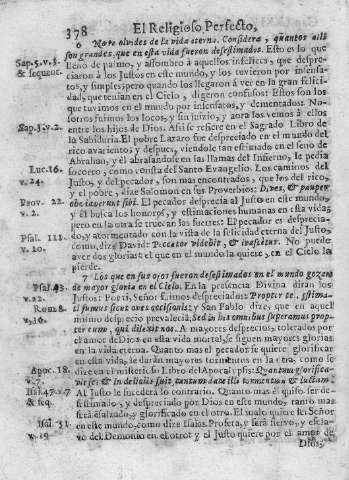 378
El Religioso Perfecto,
6 No te olvides de la vida eterna. Considera, quantos allà
son grandes, que en esta vida fueron desestimados. Esto es lo que
Sap. 5. v. 3. & sequent.
lleno de pasmo, y assombro à aquellos infelices, que despre-
ciaron à los Justos en este mundo, y los tuvieron por insensa-
tos, y simples; pero quando los llegaron à ver en la gran feli-
cidad, que tenian en el Cielo, digeron confusos: Estos son los
que tuvimos en el mundo por insensatos, y dementados: No-
sotros fuimos los locos, y sin juizio, y aora los vemos à ellos
Sap. 5. v. 2.
entre los hijos de Dios. Assi se refiere en el Sagrado Libro de
la Sabiduria. El pobre Lazaro fue despreciado en el mundo del
rico avariento, y despues, viendole tan estimado en el seno de
Abrahan, y èl abrasandose en las llamas del Infierno, le pedia
Luc. 16. v. 24.
socorro, como consta del Santo Evangelio. Los caminos del
Justo, y del pecador, son mas encontrados, que los del rico,
y el pobre, dize Salomon en sus Proverbios: Dives, & pauper
Prov. 22. v. 2.
obviaverunt sibi. El pecador desprecia al Justo en este mundo,
y èl busca los honores, y estimaciones humanas en esta vida;
pero en la otra se truecan las suertes: El pecador es desprecia-
do, y atormentado con la vista de la felicidad eterna del Justo,
Psal. 111. v. 10.
como, dize David: Peccator videbit, & irascetur. No puede
aver dos glorias: el que en el mundo la quiere, en el Cielo la
pierde.
7 Los que en sus ojos fueron desestimados en el mundo gozan
Psal. 43. v. 22.
de mayor gloria en el Cielo. En la presencia Divina diran los
Justos: Por ti, Señor, fuimos despreciados: Propter te,
sumus sicut oves occisionis; y San Pablo dize, que en aquel
Rom. 8.
mismo desprecio prevalecia, Sed in his omnibus superamus prop-
ter eum, qui dilexit nos. A mayores desprecios, tolerados por
el amor de Dios en esta vida mortal, se siguen mayores glorias
en la vida eterna. Quanto mas el pecador se quiere glorificar
en esta vida, le daràn mayores tormentos en la otra, como se
Apoc. 18. v. 7.
dize en el misterioso Libro del Apocalypsis: Quantum glorifica-
vit se, & in delitiis fuit, tantum date illi tormentum & luctum.
& seq.
Al Justo le sucederà lo contrario. Quanto mas èl quiso ser de-
sestimado, y despreciado por Dios en este mundo, tanto mas
serà ensalzado, y glorificado en el otro. El malo quiere ser Señor
en este mundo, como dize Isaias Profeta, y serà siervo, y escla-
v. 19.
vo del Demonio en el otro; y el Justo quiere por el amor de
Dios,